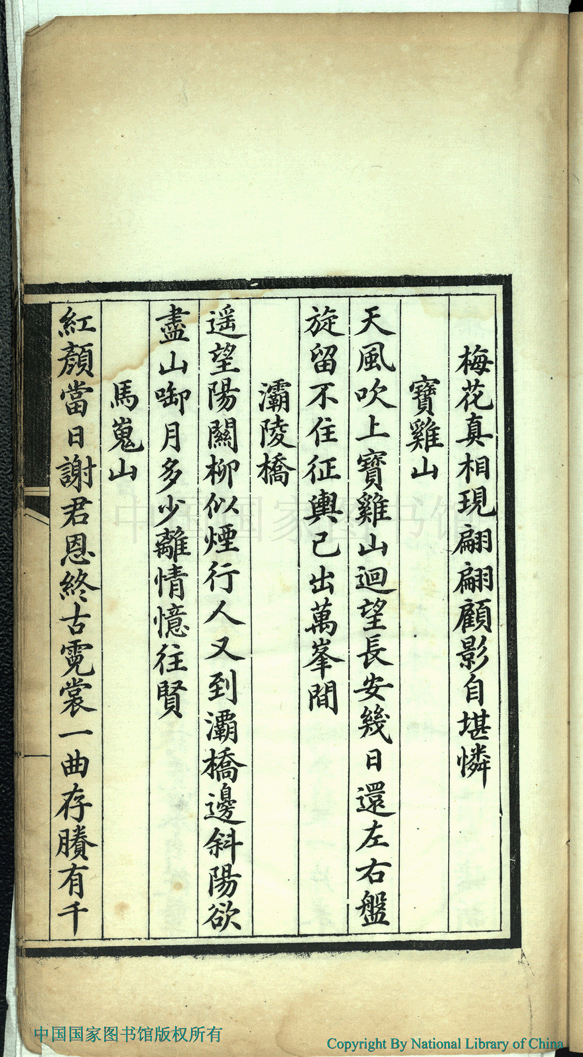 梅花真相現翩翩顧影自堪憐
寶雞山
天風吹上寶雞山迴望長安幾日還左右盤
旋留不住征輿已出萬峯間
灞陵橋
遥望陽關柳似煙行人又到灞橋邊斜陽欲
盡山啣月多少離情憶往賢
馬嵬山
紅顏當日謝君恩終古霓裳一曲存賸有千
中国国家图书馆
中国国家图书馆版权所有
Copyright By National Library of China